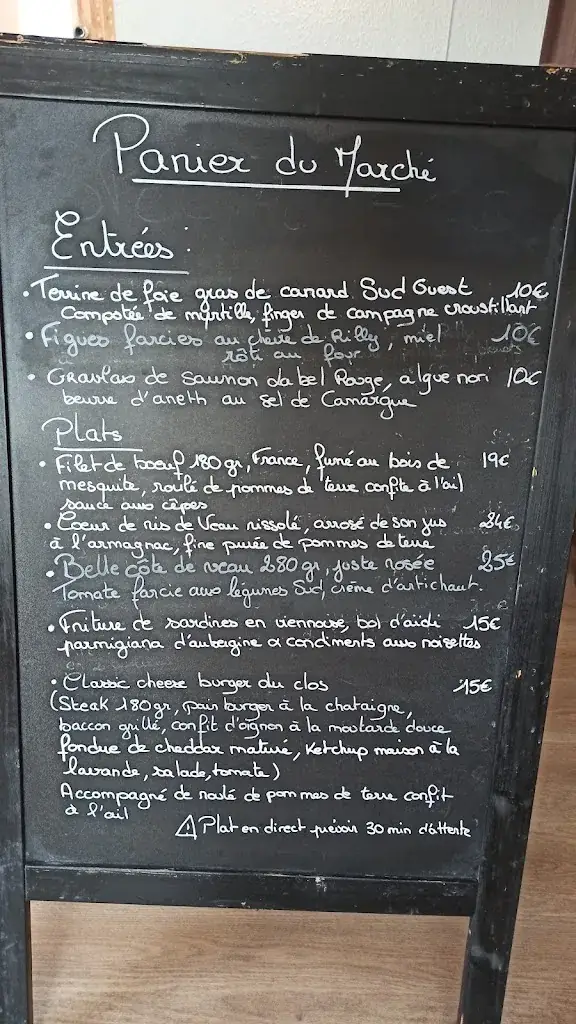 Panier du Marché
Entrées :
• Terrine de foie gras de canard Sud Ouest 10€
Compotée de myrtille, finger de campagne croustillant
• Figues farcies au chèvre de Rilly, miel 10€
rôti au four
• Gravlax de saumon label Rouge, algue nori 10€
beurre d'aneth au sel de Camargue
Plats
• Filet de boeuf 180gr, France, fumé au bois de 19€
mesquite, roulé de pommes de terre confite à l'ail
sauce aux cèpes
• Coeur de ris de Veau rissolé, arrosé de son jus 24€
à l'armagnac, fine purée de pommes de terre
• Belle côte de veau 280gr, juste rosée 25€
Tomate farcie aux légumes Sud, crème d'artichaut.
• Friture de sardines en viennoise, bol d'aïoli 15€
parmigiana d'aubergine a condiments aux noisettes
• Classic cheese burger du clos 15€
(Steak 180gr, pain burger à la chataigne,
baccon grillé, confit d'oignon à la moutarde douce
fondue de cheddar maturé, Ketchup maison à la
lavande, salade, tomate)
Accompagné de roulé de pommes de terre confit
à l'ail
⚠ Plat en direct prévoir 30 min d'attente